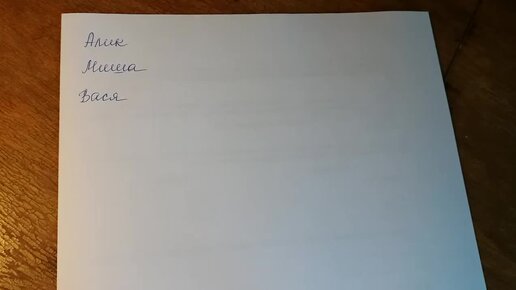 Алик
Миша
Вася